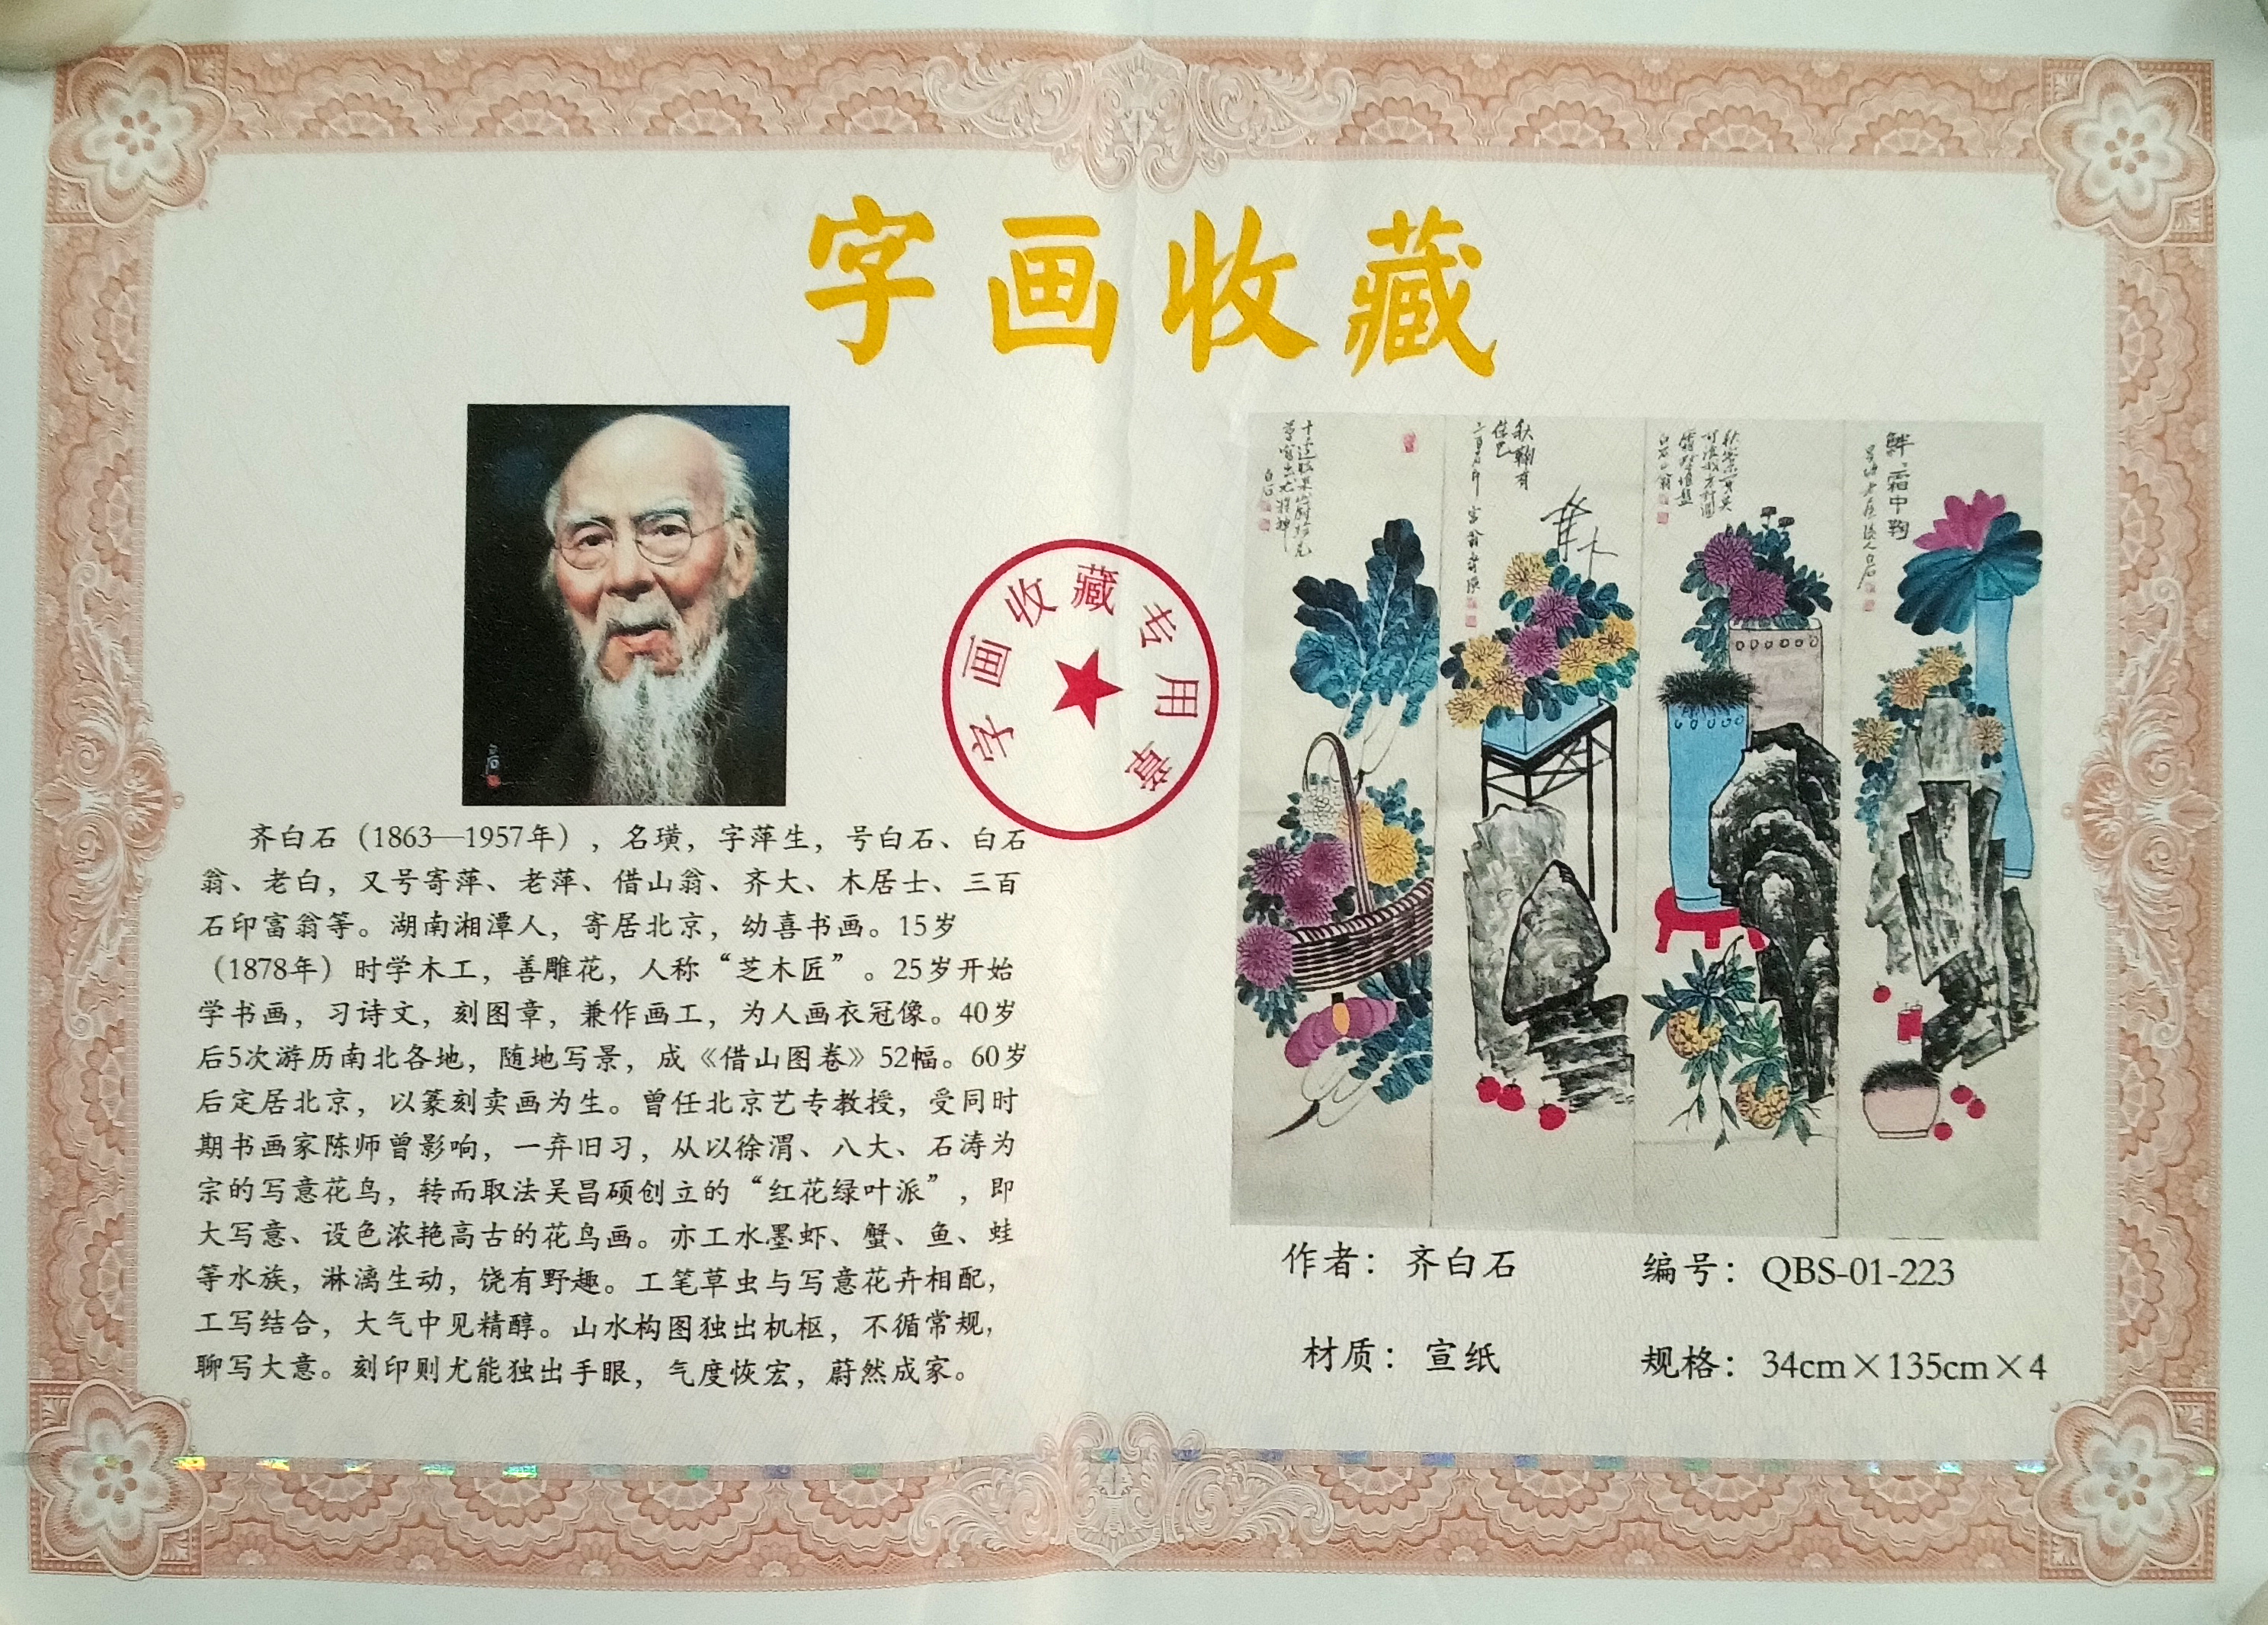 字画收藏
字画收藏专用章
齐白石（1863—1957年），名璜，字萍生，号白石、白石
翁、老白，又号寄萍、老萍、借山翁、齐大、木居士、三百
石印富翁等。湖南湘潭人，寄居北京，幼喜书画。15岁
（1878年）时学木工，善雕花，人称“芝木匠”。25岁开始
学书画，习诗文，刻图章，兼作画工，为人画衣冠像。40岁
后5次游历南北各地，随地写景，成《借山图卷》52幅。60岁
后定居北京，以篆刻卖画为生。曾任北京艺专教授，受同时
期书画家陈师曾影响，一弃旧习，从以徐渭、八大、石涛为
宗的写意花鸟，转而取法吴昌硕创立的“红花绿叶派”，即
大写意、设色浓艳高古的花鸟画。亦工水墨虾、蟹、鱼、蛙
等水族，淋漓生动，饶有野趣。工笔草虫与写意花卉相配，
工写结合，大气中见精醇。山水构图独出机枢，不循常规，
聊写大意。刻印则尤能独出手眼，气度恢宏，蔚然成家。
白石
秋菊有
佳色
霜中鞠
白石
作者：齐白石
编号：QBS-01-223
材质：宣纸
规格：34cm×135cm×4